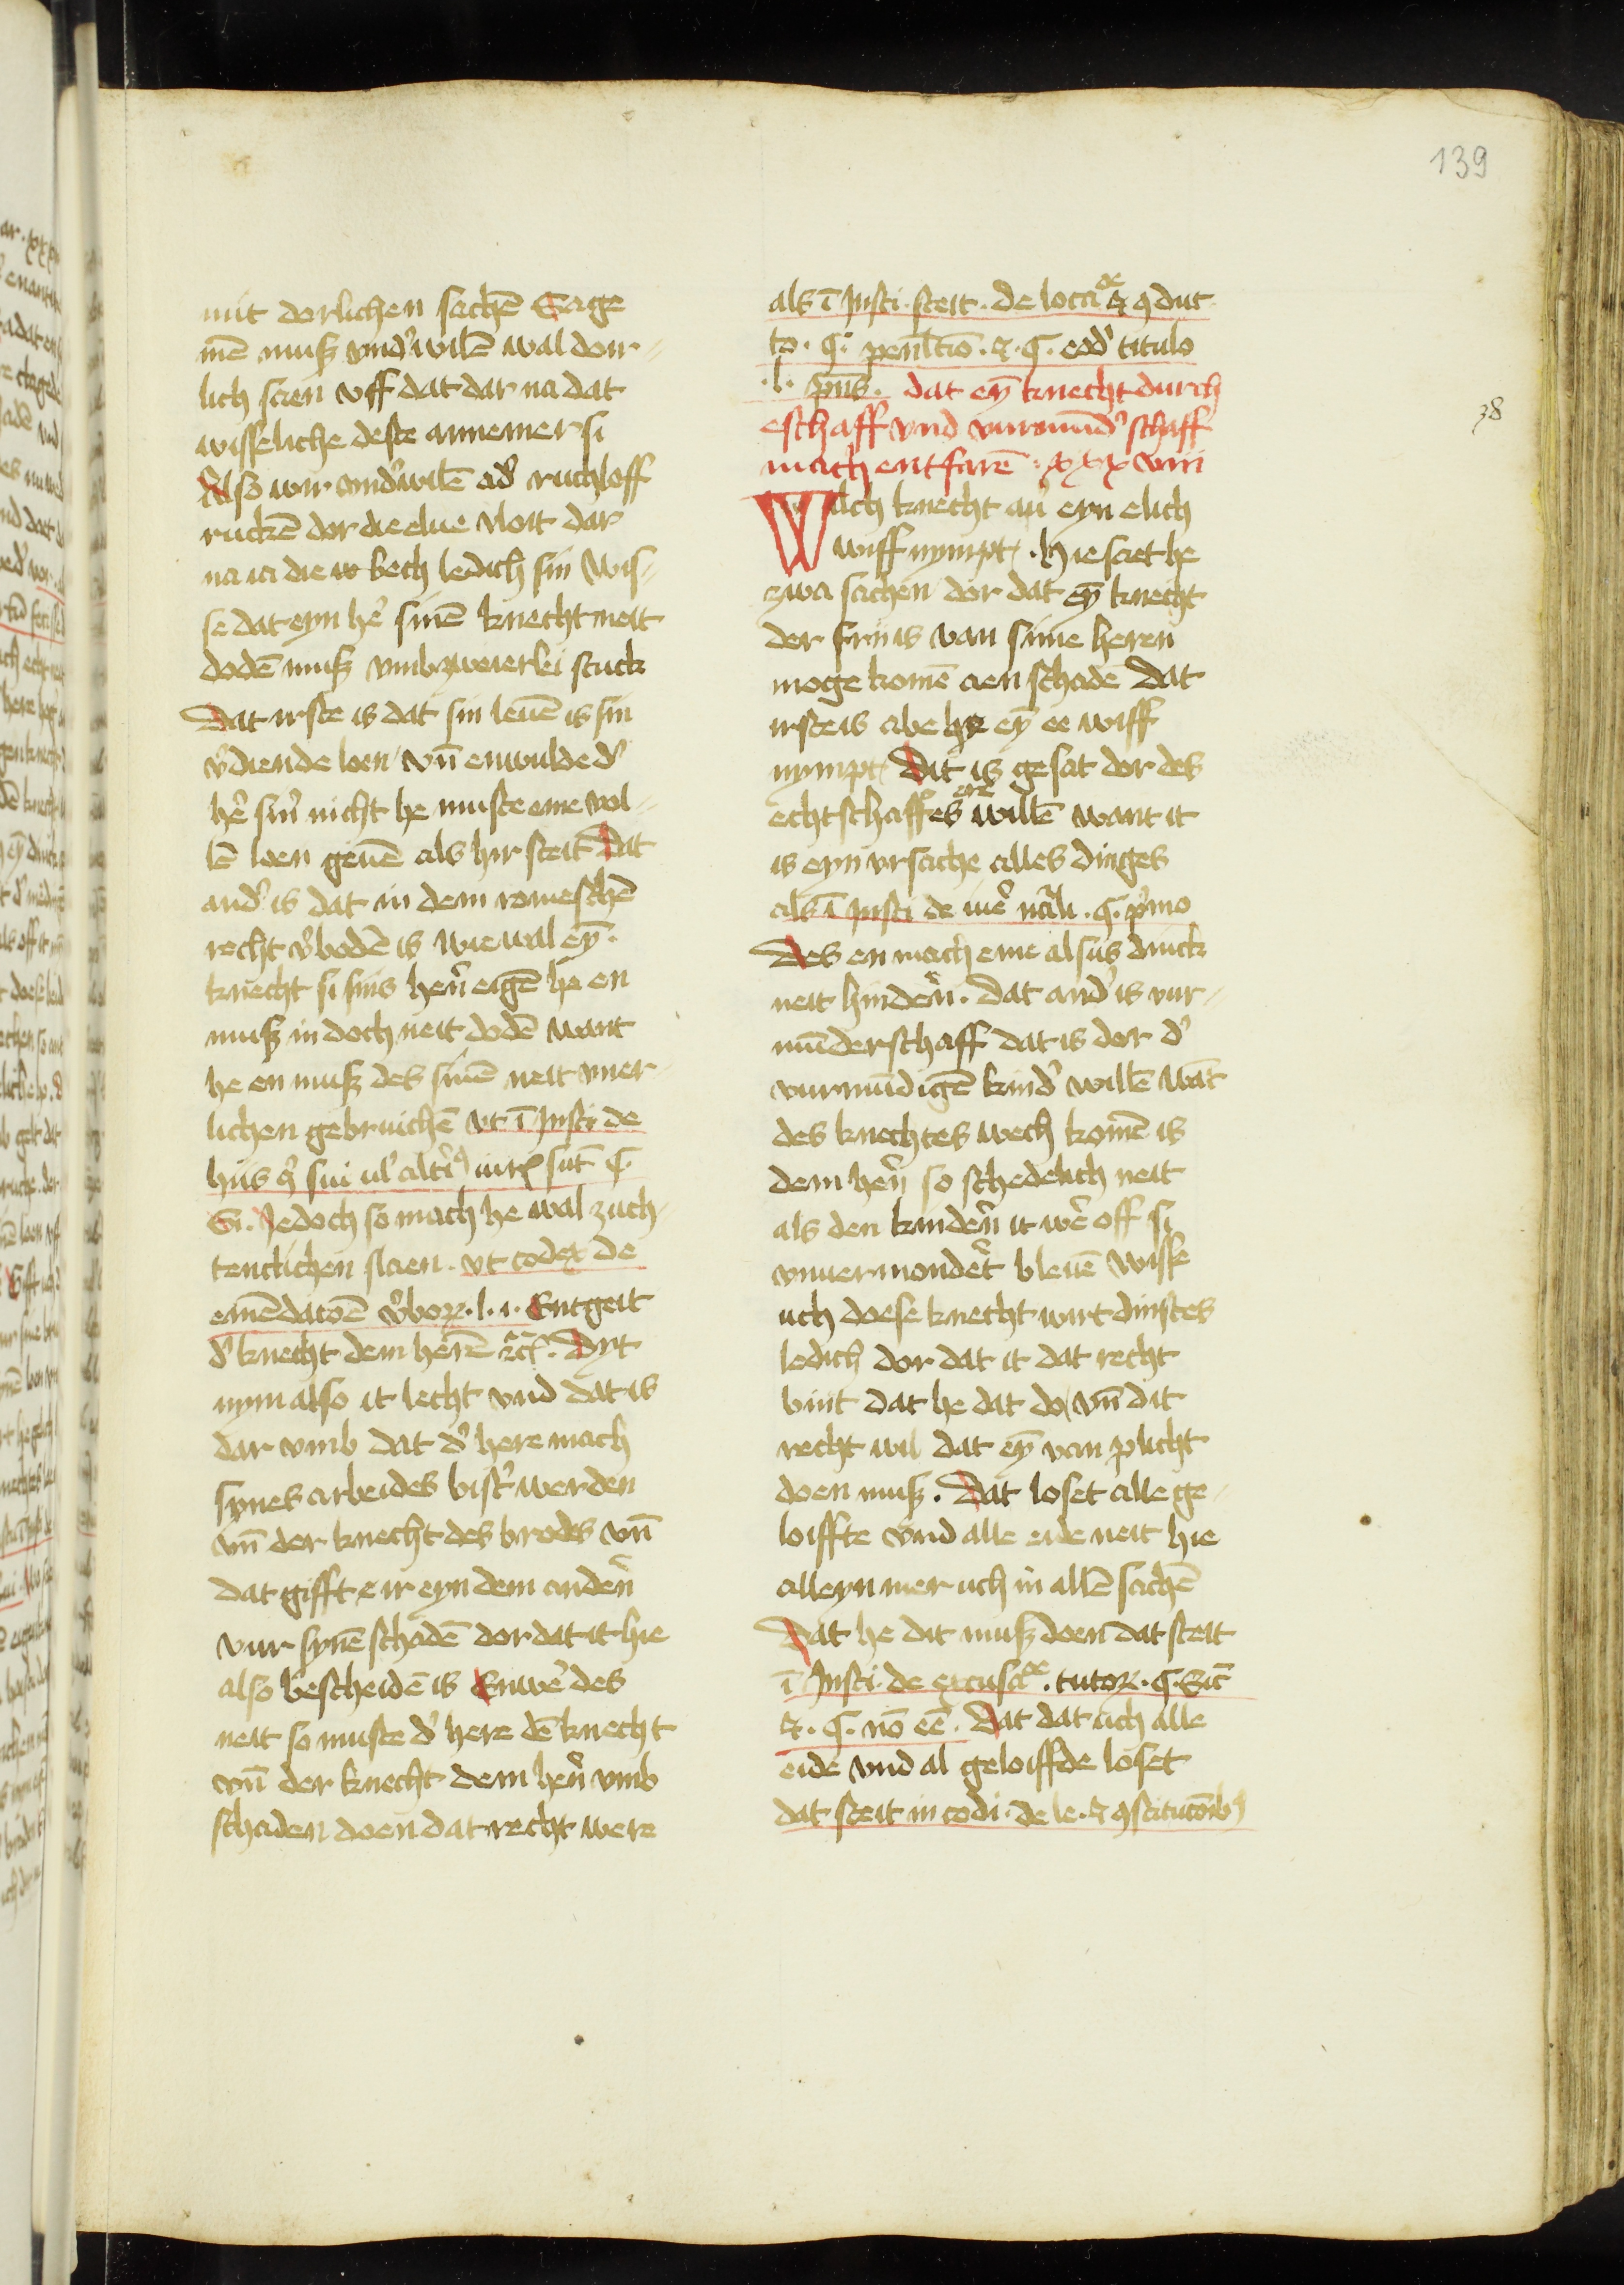 139
mit dorlichen sachē Sage
mē muß vnd' wilē wal dor-
lich scen vff dat dar na dat
wisseliche deste annemer si
Also wir vnd'wilē ad' ruchloff
ruckē dor die elue vloit dar
na ia die bech ledich sin Wis-
se dat eyn he' sinē knecht neit
dodē muß vmb zweierlei stuck
Dat irste is dat sin leuē is sin
v'diende loen vn̄ enwulde d'
he' sin' nicht he muste eme vol-
lē loen geuē als hir steit Dat
and' is dat in dem romeschē
recht v'bodē is wie wal eȳ
knecht si sins hen' eigē he en
muß in doch neit dodē want
he en muß des sinē neit vner-
lichen gebruichē vt ī Insti de
hiis q' sui ul' alt'i9 iur sūt §.
Si. Jedoch so mach he wal zuch-
tenclichen slaen. vt codex de
emēdatōē s'uor. l. i. Entgeit
d' knecht dem herē ꝛc. Dyt
nym also it lecht vnd dat is
dar vmb dat d' here mach
synes arbeides bist' werden
vn̄ der knecht des brodes vn̄
dat gifft e ir eyn dem anden'
vur synē schadē dor dat it hie
also bescheidē is Enwe' des
neit so muste d' here dē knecht
vn̄ der knecht dem hen' vmb
schaden doen dat recht were
als ī Insti. steit. de loca &amp; 9duc
to. §. penl'tio. &amp;. §. eod' titulo
.l. pn̄s. dat eȳ knecht durch
eschaff vnd vurmund' schaff
mach entfarē. xxx viii
38
Wilch knecht au' eyn elich
wiff nympt. Hie saet he
zwa sachen dor dat eȳ knecht
der frii is van sime heren
moge komē aen schadē Dat
irste is abe he eȳ ee wiff
nympt Dit is gesat dor des
echtschaffes ere willē want it
is eyn vrsache alles dinges
als ī Insti de iure nāli. §. p'mo
Des en mach eme alsus dinck
neit hinden'. Dat and' is vur-
mūderschaff dat is dor d'
vurmūdigē kind' willē wāt
des knechtes wech komē is
dem hen' so schedelich neit
als den kinden' it we' off si
vnuermondet bleuē Wisse
uch doese knecht wirt dinstes
ledich dor dat it dat recht
bint dat he dat do vn̄ dit
recht wil dat eȳ van plicht
doen muß. Dat loset alle ge-
loiffte vnd alle eide neit hie
alleyn mer uch in allē sachē
Dat he dit muß doen dat steit
ī Insti. de excusa. tutor. §. Sūt
&amp;. §. nō eē. Dat dat uch alle
eide vnd al geloiffde loset
dat steit in codi. de le. &amp; 9stitucōib9